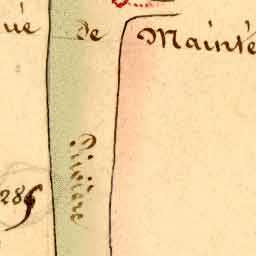 ué de Mainte
Rivière
286